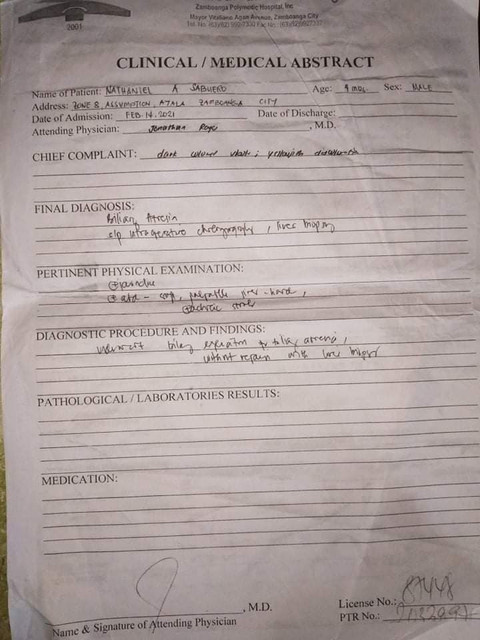 2001
Zamboanga Polymedic Hospital, Inc.
Mayor Vitaliano Agan Avenue, Zamboanga City
CLINICAL / MEDICAL ABSTRACT
Name of Patient: NATHANIEL A SABUERO Age: 4 mos. Sex: MALE
Address: ZONE 8, ASSUMPTION, AYALA ZAMBOANGA CITY
Date of Admission: FEB 14, 2021 Date of Discharge:
Attending Physician: Jonathan , M.D.
CHIEF COMPLAINT: dark colored ; yellowish discoloration
FINAL DIAGNOSIS:
Biliary Atresia
s/p intraoperative cholangiography, liver biopsy
PERTINENT PHYSICAL EXAMINATION:
jaundice
abd - , palpable liver - hard,
acholic stools
DIAGNOSTIC PROCEDURE AND FINDINGS:
underwent biliary exploration for biliary atresia,
without repair with liver biopsy
PATHOLOGICAL / LABORATORIES RESULTS:
MEDICATION:
, M.D.
Name & Signature of Attending Physician
License No.: 87448
PTR No.: